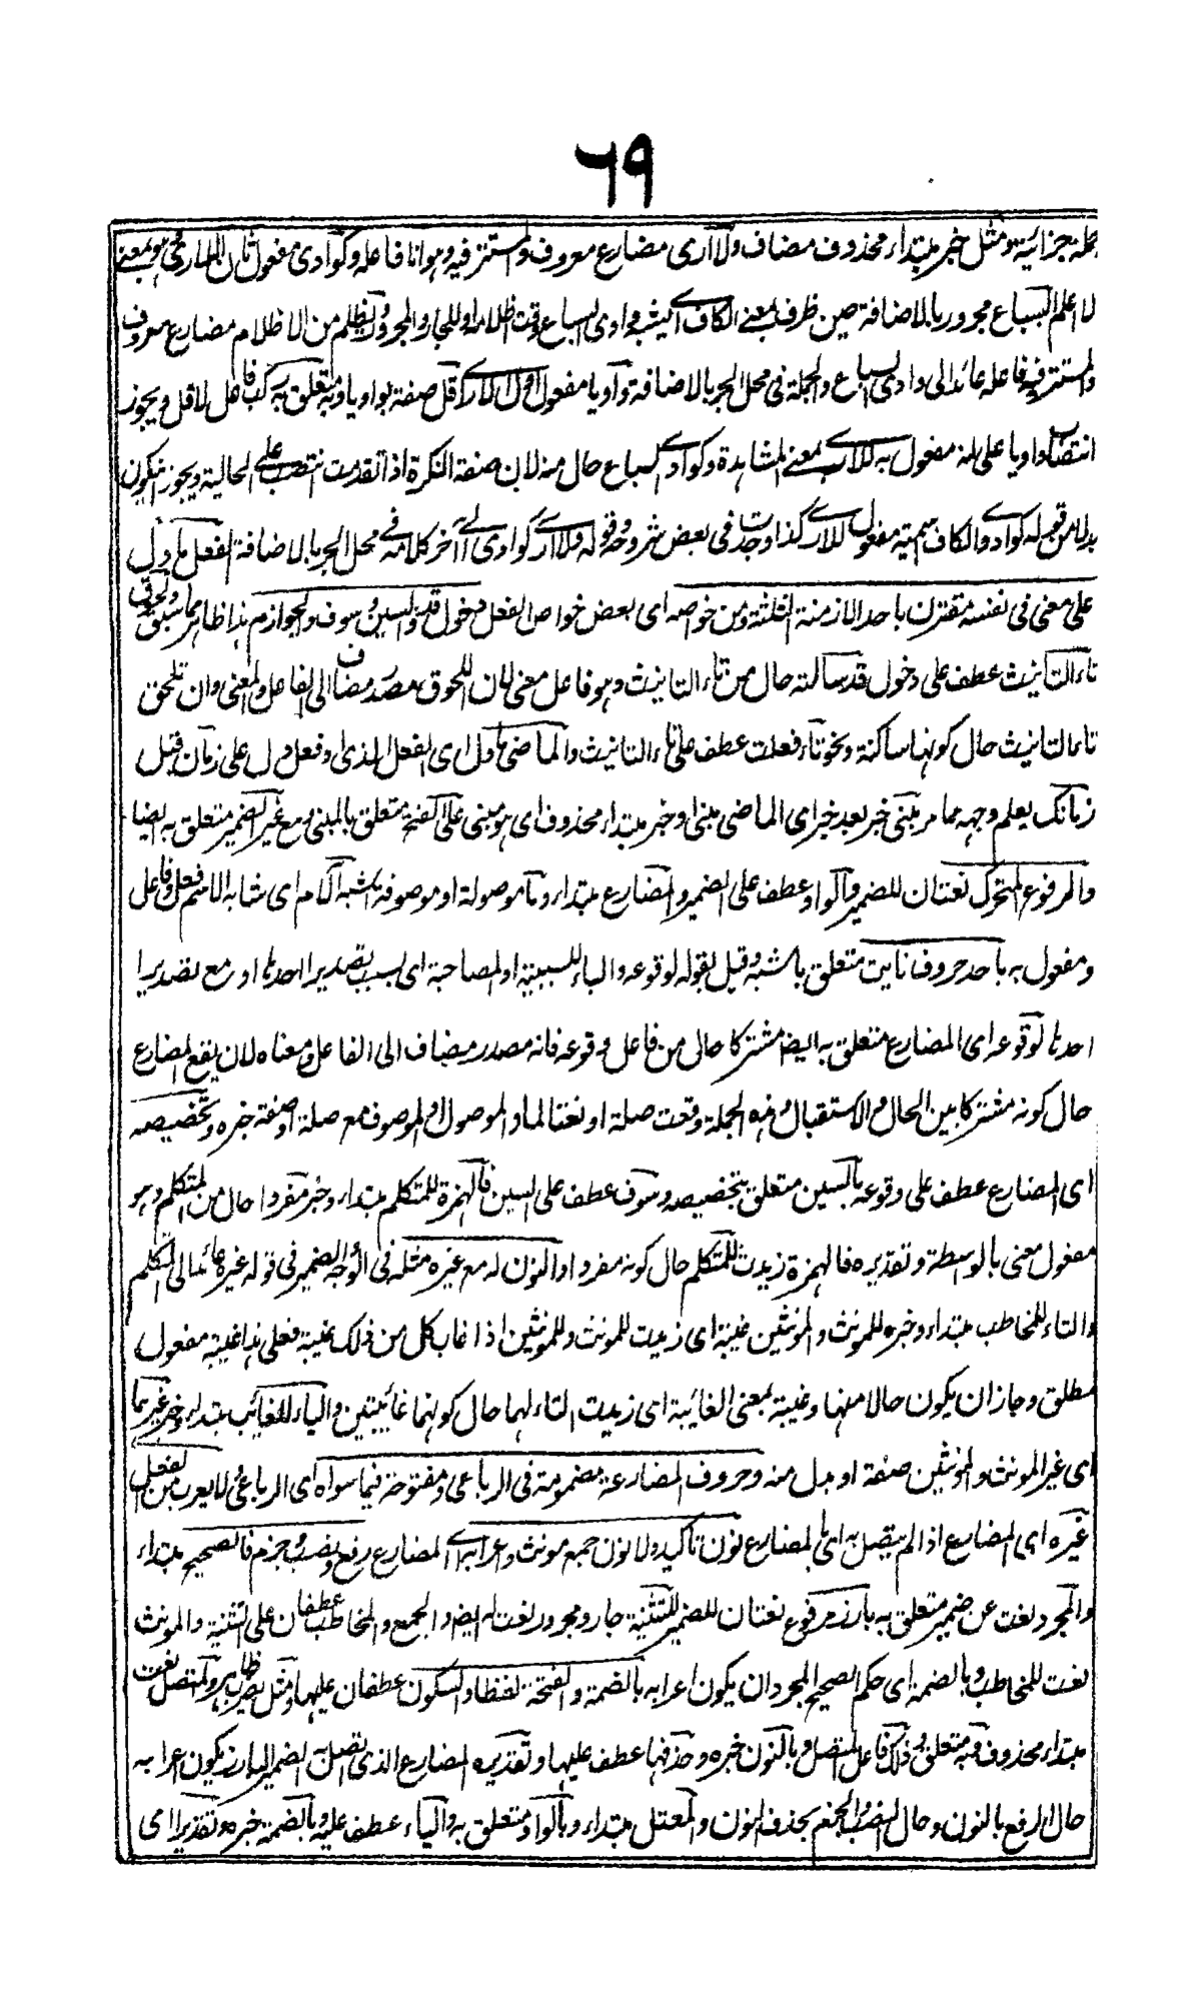 ٦٩
جملة جزائية ومثل خبر مبتداء محذوف مضاف ولا ارى مضارع معروف والمستتر فيه وهو انا فاعله وكوادى مفعول ثان للا ارى هو بمعنى
لا اعلم السباع مجرور بالاضافة حين ظرف لمعنى الكاف اى اشبه وادى السباع وقت اظلامه او للجار والمجرور ويظلم من الاظلام مضارع معروف
والمستتر فيه فاعله عائد الى وادى السباع والجملة فى محل الجر بالاضافة وآديا مفعول اول للا ارى اقل صفة لواديا وبه متعلق به ركب فاعل لاقل ويجوز
انتصاب واديا على انه مفعول به للا ارى بمعنى المشاهدة وكوادى السباع حال منه لان صفة النكرة اذا تقدمت تنتصب على الحالية ويجوز ان يكون
بدلا من قوله كوادى والكاف اسمية مفعول للا ارى كذا وجدت فى بعض شروحه وقوله ولا ارى كوادى الى آخر كلامه فى محل الجر بالاضافة الفعل ما دل
على معنى فى نفسه مقترن باحد الازمنة الثلثة ومن خواصه اى بعض خواص الفعل دخول قد والسين وسوف والجوازم هذا ظاهر مما سبق ولحوق
تاء التانيث عطف على دخول قد ساكنة حال من تاء التانيث وهو فاعل معنى لان اللحوق مصدر مضاف الى الفاعل والمعنى وان تلحق
تاء التانيث حال كونها ساكنة ونحو تاء فعلت عطف على تاء التانيث والماضى ما دل اى الفعل الذى او فعل دل على زمان قبل
زمانك يعلم وجهه مما مر مبنى خبر بعد خبر اى الماضى مبنى او خبر مبتداء محذوف اى هو مبنى على الفتح متعلق بالمبنى ومع غير الضمير متعلق به ايضا
والمرفوع المتحرك نعتان للضمير والواو عطف على الضمير والمضارع مبتداء وما موصولة او موصوفة اشبه الاسم اى شابه الاسم فعل وفاعل
ومفعول به باحد حروف نايت متعلق باشبه وقيل بقوله لوقوعه والباء للسببية او المصاحبة اى بسبب تصدير احدها او مع تصدير
احدها لوقوعه اى المضارع متعلق به ايضا مشتركا حال من فاعل وقوعه فانه مصدر مضاف الى الفاعل ومعناه لان يقع المضارع
حال كونه مشتركا بين الحال والاستقبال وهذه الجملة وقعت صلة او نعتا لما والموصول او الموصوف مع صلة او صفة خبره وتخصيصه
اى المضارع عطف على وقوعه بالسين متعلق بتخصيصه وسوف عطف على السين فالهمزة للمتكلم مبتداء وخبر مفردا حال من المتكلم وهو
مفعول معنى بالواسطة وتقديره فالهمزة زيدت للمتكلم حال كونه مفردا والنون له مع غيره مثله فى الوجه والضمير فى قوله غيره عائد الى المتكلم
والتاء للمخاطب مبتداء وخبره للمونث والمونثين غيبة اى زيدت للمونث وللمونثين اذا غاب كل من ذلك غيبة فعلى هذا غيبة مفعول
مطلق وجاز ان يكون حالا منها وغيبة بمعنى الغائبة اى زيدت التاء لهما حال كونهما غائبتين والياء للغائب مبتداء وخبر غيرهما
اى غير المونث والمونثين صفة او بدل منه وحروف المضارعة مضمومة فى الرباعى ومفتوحة فيما سواه اى الرباعى ولا يعرب من الفعل
غيره اى المضارع اذا لم يتصل به اى بالمضارع نون تاكيد ولا نون جمع مونث واعرابه اى المضارع رفع ونصب وجزم فالصحيح مبتداء
والمجرد نعت عن ضمير متعلق به بارز مرفوع نعتان للضمير للتثنية جار ومجرور نعت له ايضا والجمع والمخاطب عطفان على التثنية والمونث
نعت للمخاطب وبالضمة اى حكم الصحيح المجرد ان يكون اعرابه بالضمة والفتحة لفظا والسكون عطفان عليها ومثل يضرب ظاهر والمتصل نعت
مبتداء محذوف وبه متعلق وذلك فاعل المتصل وبالنون خبره وحذفها عطف عليها وتقديره المضارع الذى اتصل به الضمير البارز يكون اعرابه
حال الرفع بالنون وحال النصب والجزم بحذف النون والمعتل مبتداء وبالواو متعلق به والياء عطف عليه وبالضمة خبره وتقديرا اى